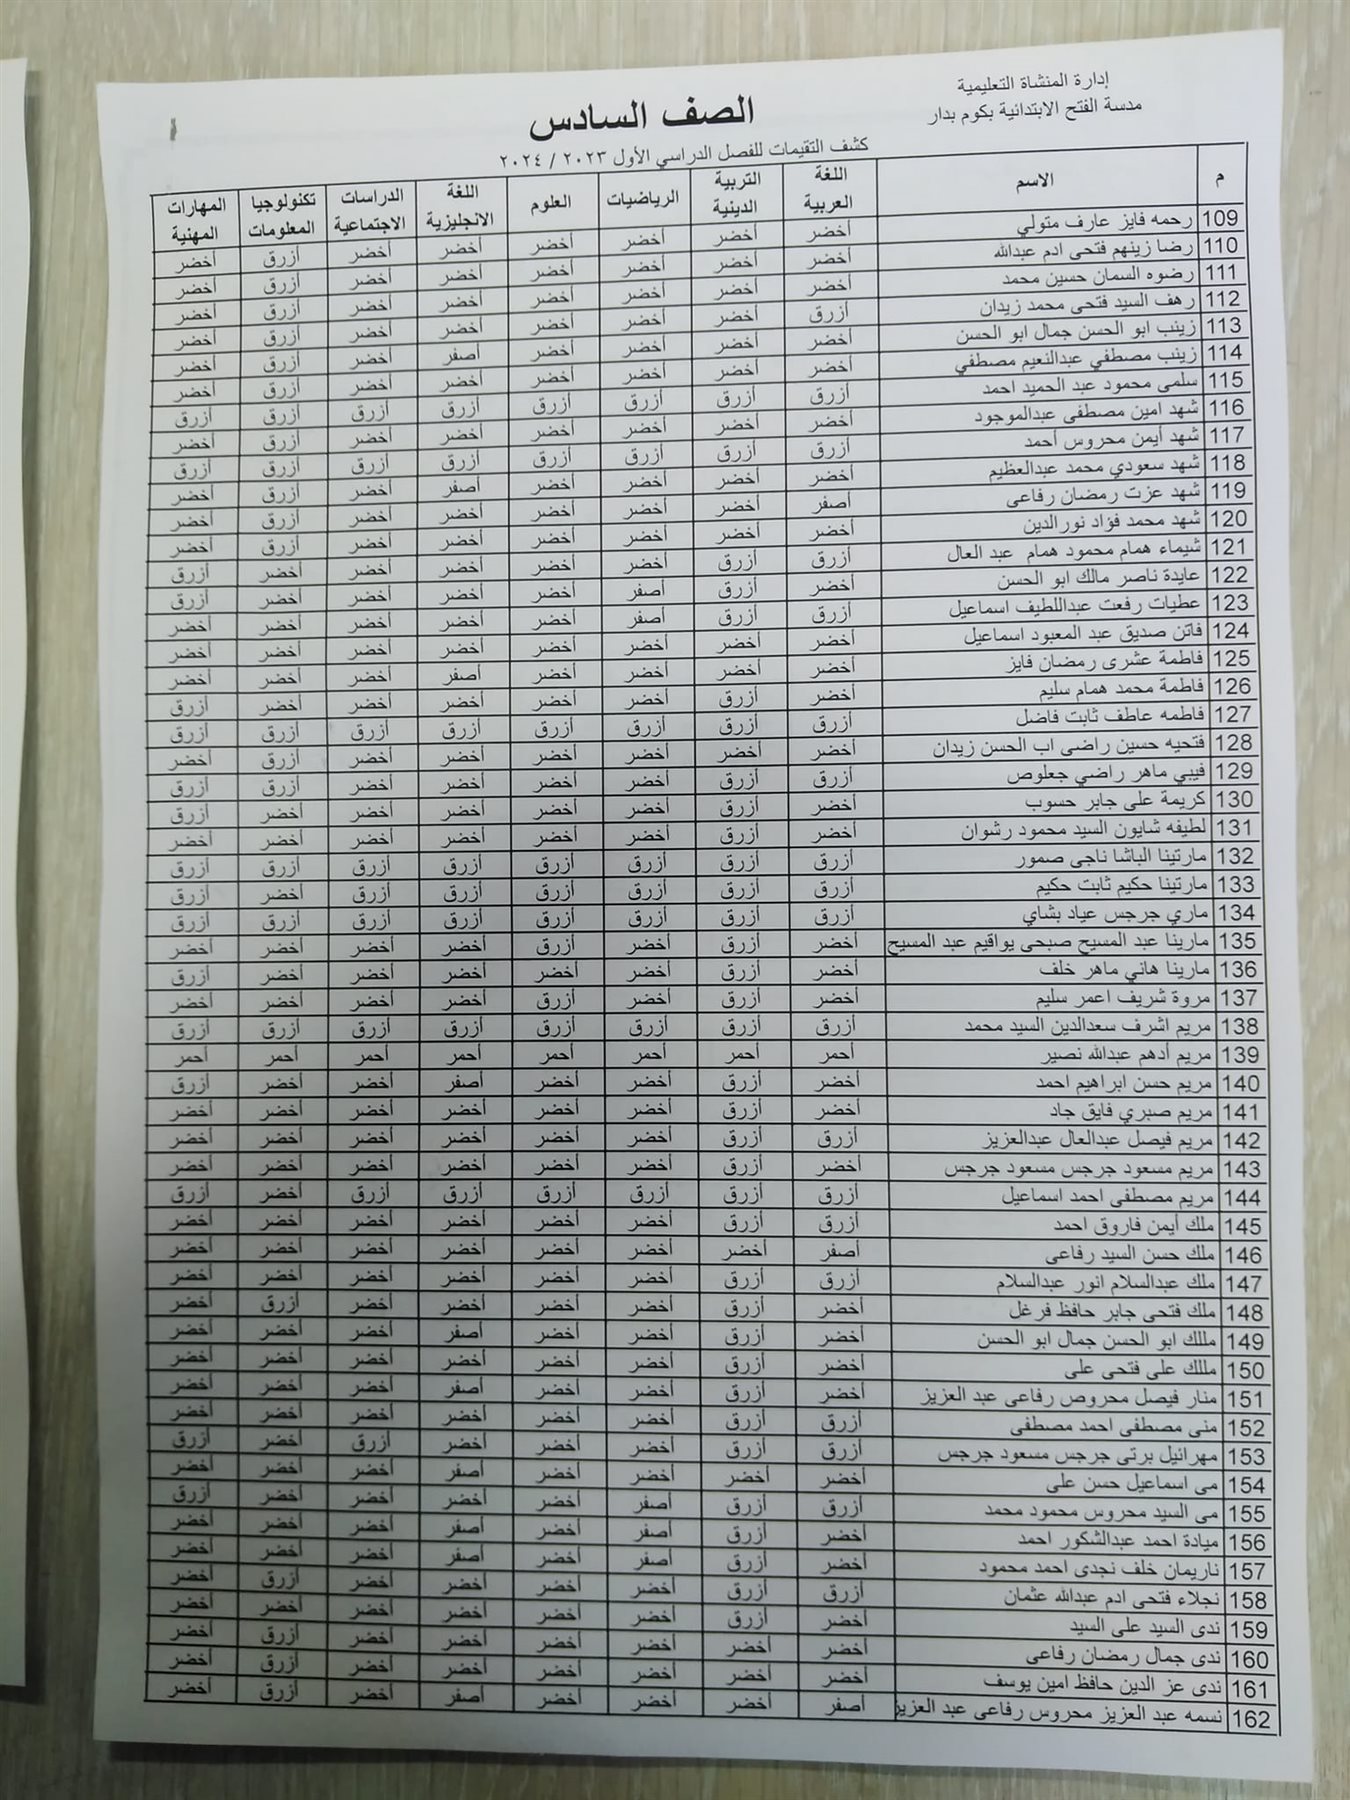 إدارة المنشاة التعليمية
مدسة الفتح الابتدائية بكوم بدار
الصف السادس
كشف التقيمات للفصل الدراسي الأول ٢٠٢٣ / ٢٠٢٤
م الاسم اللغة العربية التربية الدينية الرياضيات العلوم اللغة الانجليزية الدراسات الاجتماعية تكنولوجيا المعلومات المهارات المهنية
109 رحمه فايز عارف متولي أخضر أخضر أخضر أخضر أخضر أخضر أزرق أخضر
110 رضا زينهم فتحى ادم عبدالله أخضر أخضر أخضر أخضر أخضر أخضر أزرق أخضر
111 رضوه السمان حسين محمد أخضر أخضر أخضر أخضر أخضر أخضر أزرق أخضر
112 رهف السيد فتحى محمد زيدان أزرق أخضر أخضر أخضر أخضر أخضر أزرق أخضر
113 زينب ابو الحسن جمال ابو الحسن أخضر أخضر أخضر أخضر أصفر أخضر أزرق أخضر
114 زينب مصطفي عبدالنعيم مصطفي أخضر أخضر أخضر أخضر أخضر أخضر أزرق أخضر
115 سلمى محمود عبد الحميد احمد أزرق أزرق أزرق أزرق أزرق أزرق أزرق أزرق
116 شهد امين مصطفى عبدالموجود أخضر أخضر أخضر أخضر أخضر أخضر أزرق أخضر
117 شهد أيمن محروس أحمد أزرق أزرق أزرق أزرق أزرق أزرق أزرق أزرق
118 شهد سعودي محمد عبدالعظيم أخضر أخضر أخضر أخضر أصفر أخضر أزرق أخضر
119 شهد عزت رمضان رفاعى أصفر أخضر أخضر أخضر أخضر أخضر أزرق أخضر
120 شهد محمد فؤاد نورالدين أخضر أخضر أخضر أخضر أخضر أخضر أزرق أخضر
121 شيماء همام محمود همام عبد العال أزرق أزرق أخضر أخضر أخضر أخضر أخضر أزرق
122 عايدة ناصر مالك ابو الحسن أخضر أزرق أصفر أخضر أخضر أخضر أخضر أزرق
123 عطيات رفعت عبداللطيف اسماعيل أزرق أزرق أصفر أخضر أخضر أخضر أخضر أخضر
124 فاتن صديق عبد المعبود اسماعيل أخضر أخضر أخضر أخضر أخضر أخضر أخضر أخضر
125 فاطمة عشرى رمضان فايز أخضر أخضر أخضر أخضر أصفر أخضر أخضر أخضر
126 فاطمة محمد همام سليم أخضر أزرق أخضر أخضر أخضر أخضر أخضر أزرق
127 فاطمه عاطف ثابت فاضل أزرق أزرق أزرق أزرق أزرق أزرق أزرق أزرق
128 فتحيه حسين راضى اب الحسن زيدان أخضر أخضر أخضر أخضر أخضر أخضر أزرق أخضر
129 فيبي ماهر راضي جعلوص أزرق أزرق أخضر أخضر أخضر أخضر أزرق أزرق
130 كريمة على جابر حسوب أخضر أزرق أخضر أخضر أخضر أخضر أخضر أزرق
131 لطيفه شايون السيد محمود رشوان أخضر أزرق أخضر أخضر أخضر أخضر أخضر أخضر
132 مارتينا الباشا ناجى صمور أزرق أزرق أزرق أزرق أزرق أزرق أزرق أزرق
133 مارتينا حكيم ثابت حكيم أزرق أزرق أزرق أزرق أزرق أزرق أخضر أزرق
134 ماري جرجس عياد بشاي أزرق أزرق أزرق أزرق أزرق أزرق أزرق أزرق
135 مارينا عبد المسيح صبحى يواقيم عبد المسيح أخضر أزرق أخضر أزرق أخضر أخضر أخضر أخضر
136 مارينا هاني ماهر خلف أخضر أزرق أخضر أخضر أخضر أخضر أخضر أزرق
137 مروة شريف اعمر سليم أخضر أزرق أخضر أزرق أخضر أخضر أخضر أخضر
138 مريم اشرف سعدالدين السيد محمد أزرق أزرق أزرق أزرق أزرق أزرق أزرق أزرق
139 مريم أدهم عبدالله نصير أحمر أحمر أحمر أحمر أحمر أحمر أحمر أحمر
140 مريم حسن ابراهيم احمد أخضر أزرق أخضر أخضر أصفر أخضر أخضر أزرق
141 مريم صبري فايق جاد أخضر أزرق أخضر أخضر أخضر أخضر أخضر أخضر
142 مريم فيصل عبدالعال عبدالعزيز أزرق أزرق أخضر أخضر أخضر أخضر أخضر أخضر
143 مريم مسعود جرجس مسعود جرجس أخضر أزرق أخضر أخضر أخضر أخضر أخضر أخضر
144 مريم مصطفى احمد اسماعيل أزرق أزرق أزرق أزرق أزرق أزرق أخضر أزرق
145 ملك أيمن فاروق احمد أزرق أزرق أخضر أخضر أخضر أخضر أخضر أخضر
146 ملك حسن السيد رفاعى أصفر أخضر أخضر أخضر أخضر أخضر أخضر أخضر
147 ملك عبدالسلام انور عبدالسلام أزرق أزرق أخضر أخضر أخضر أخضر أخضر أخضر
148 ملك فتحى جابر حافظ فرغل أخضر أزرق أخضر أخضر أخضر أخضر أزرق أخضر
149 مللك ابو الحسن جمال ابو الحسن أخضر أزرق أخضر أخضر أصفر أخضر أخضر أخضر
150 مللك على فتحى على أخضر أزرق أخضر أخضر أخضر أخضر أخضر أخضر
151 منار فيصل محروص رفاعى عبد العزيز أخضر أزرق أخضر أخضر أصفر أخضر أخضر أخضر
152 منى مصطفى احمد مصطفى أزرق أزرق أخضر أخضر أخضر أخضر أخضر أخضر
153 مهرائيل برتى جرجس مسعود جرجس أزرق أزرق أخضر أخضر أخضر أزرق أخضر أزرق
154 مى اسماعيل حسن على أخضر أخضر أخضر أخضر أصفر أخضر أخضر أخضر
155 مى السيد محروس محمود محمد أزرق أزرق أصفر أخضر أخضر أخضر أخضر أزرق
156 ميادة احمد عبدالشكور احمد أخضر أزرق أصفر أخضر أصفر أخضر أخضر أخضر
157 ناريمان خلف نجدى احمد محمود أخضر أزرق أصفر أخضر أصفر أخضر أخضر أخضر
158 نجلاء فتحى ادم عبدالله عثمان أزرق أزرق أخضر أخضر أخضر أخضر أزرق أخضر
159 ندى السيد على السيد أخضر أزرق أخضر أخضر أخضر أخضر أخضر أخضر
160 ندى جمال رمضان رفاعى أخضر أخضر أخضر أخضر أخضر أخضر أزرق أخضر
161 ندى عز الدين حافظ امين يوسف أخضر أخضر أخضر أخضر أخضر أخضر أزرق أخضر
162 نسمه عبد العزيز محروس رفاعى عبد العزيز أصفر أخضر أخضر أخضر أصفر أخضر أزرق أخضر